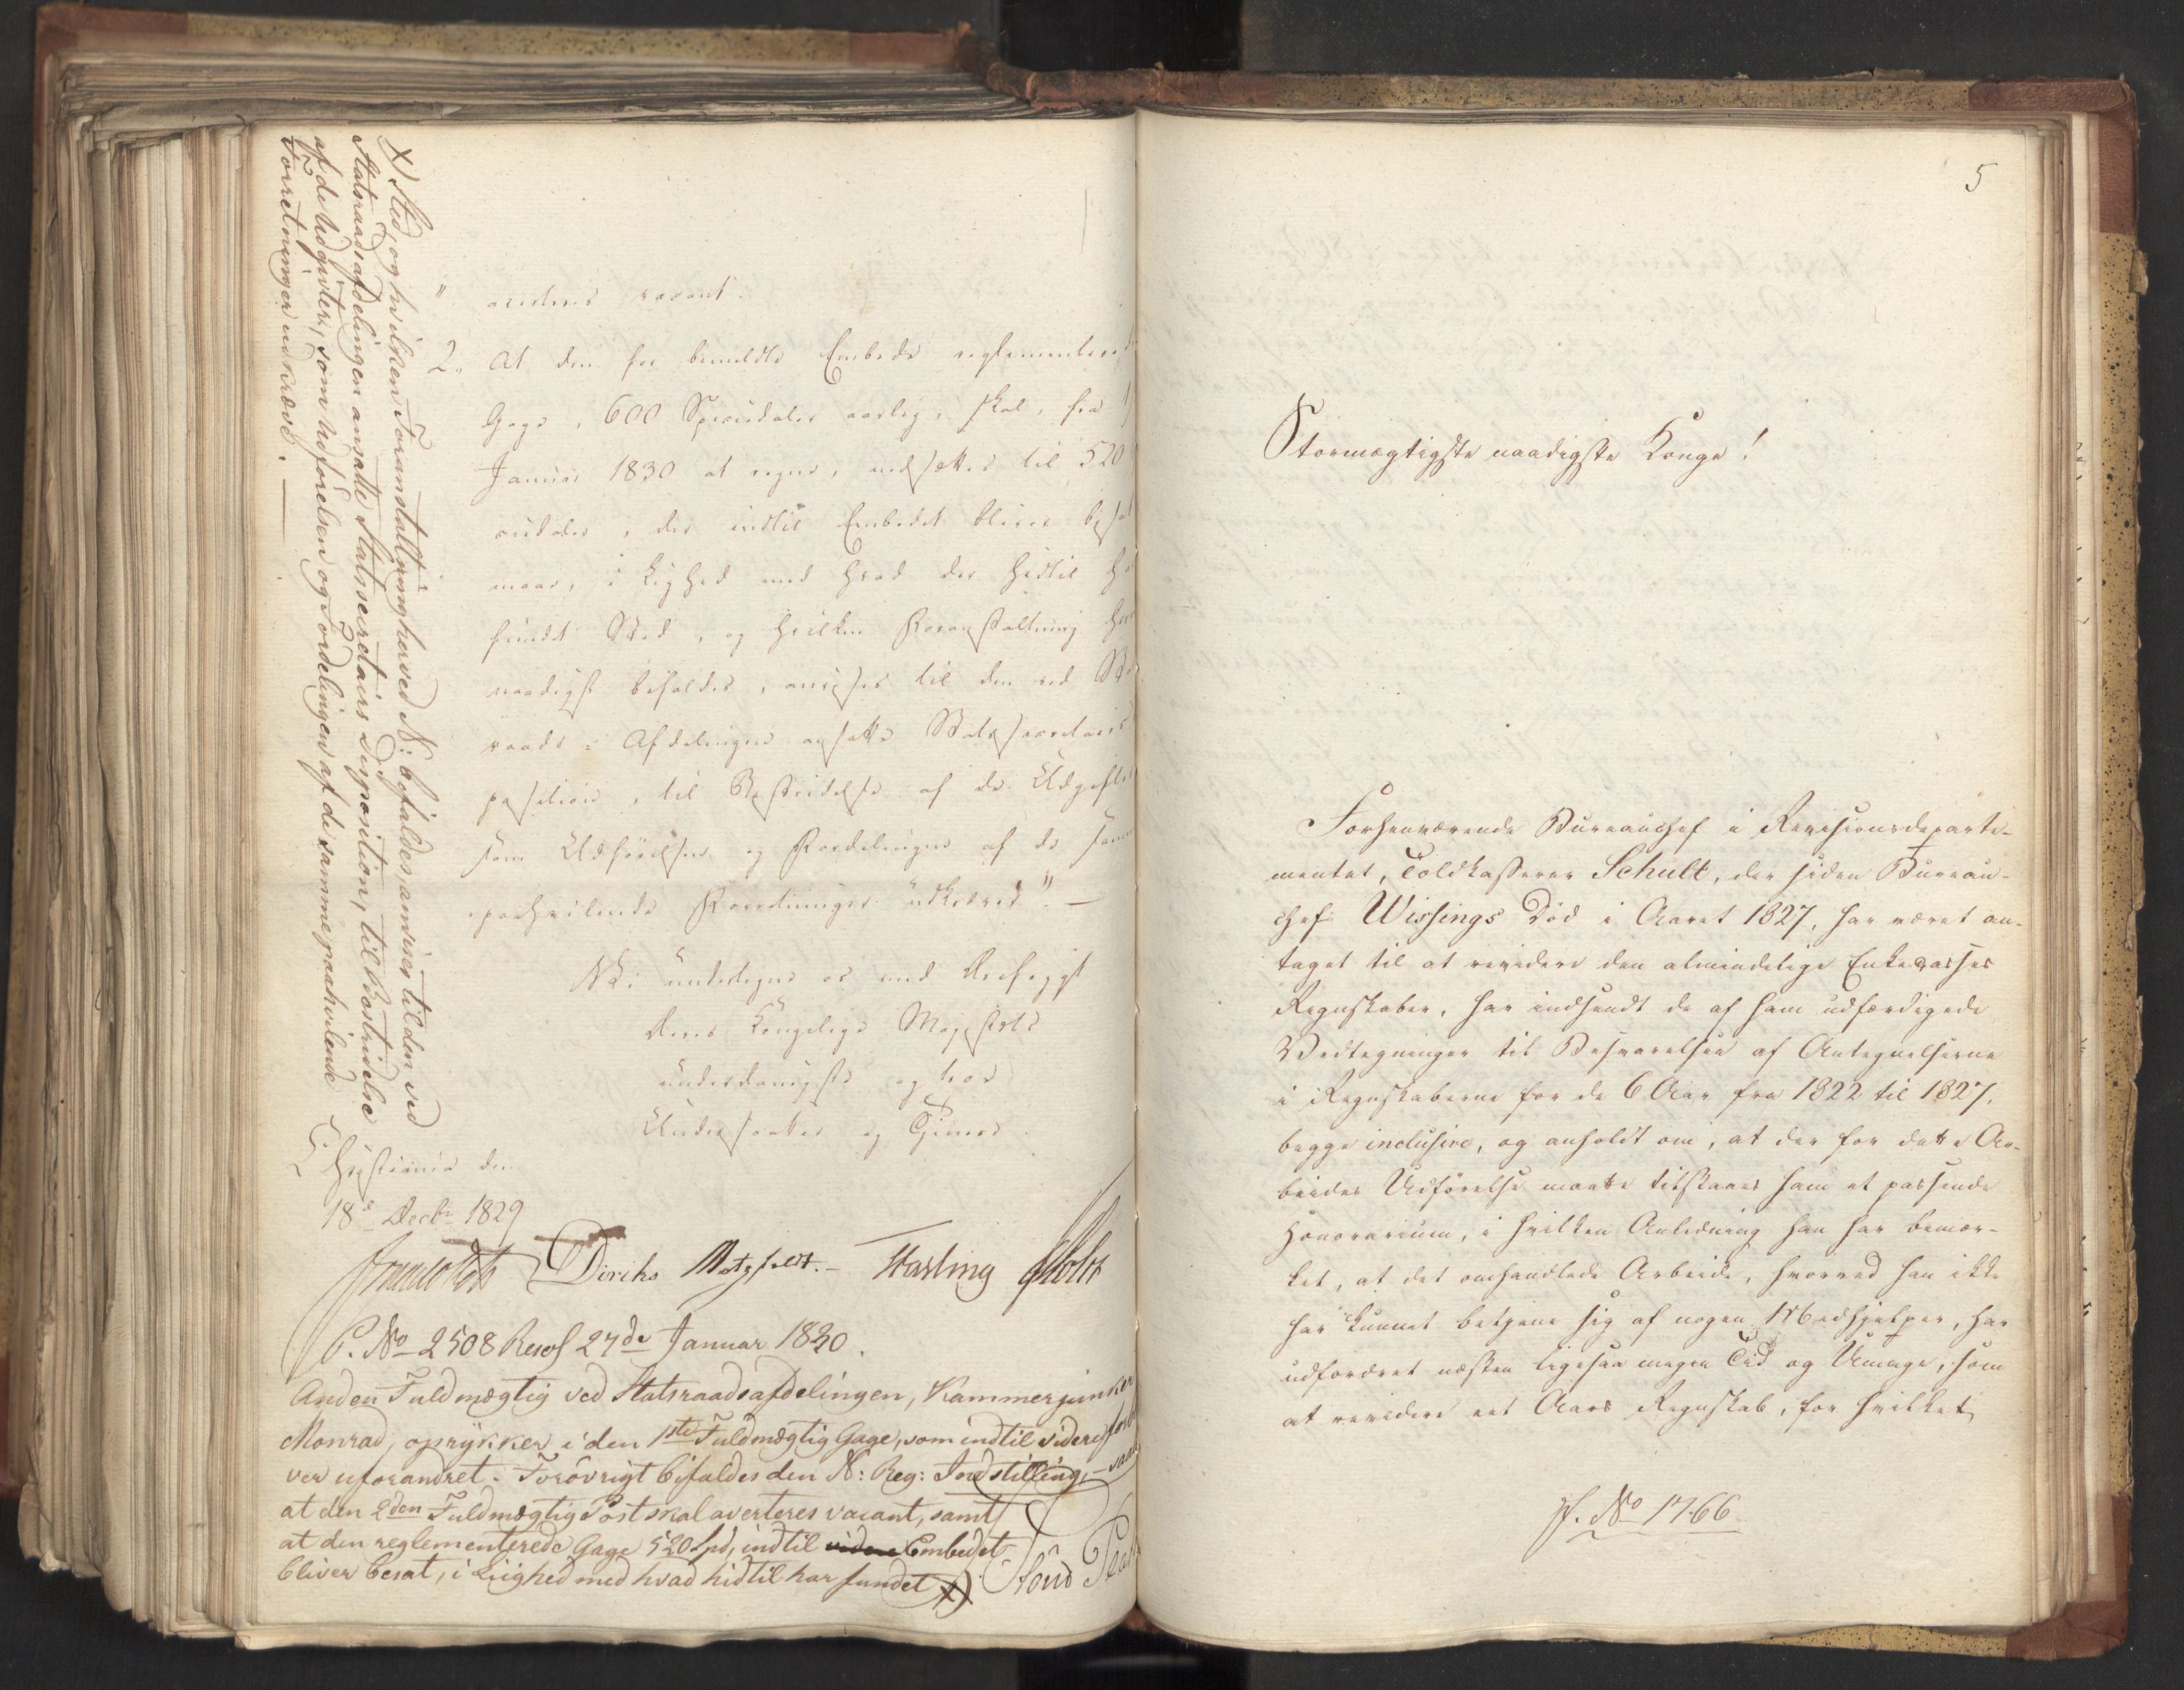 " averteres vacant.
2. At den for bemeldte Embede reglementerede
Gage, 600 Speciedaler aarlig, skal, fra 1
Januar 1830 at regne, nedsættes til 520
ciedaler, der indtil Embedet bliver besat
maae, i Liighed med hvad der hidtil ha
fundet Sted, og hvilken Foranstaltning her
naadigst bifaldes, anvises til den ved Sta
raads-Afdelingen ansatte Statssecretairs
position, til Bestridelse af de Udgifter
som Udførelsen og Fordelingen af de samme
paahvilende Forretninger udkræve". —
Vi undertegne os med Dybeste
Deres Kongelige Majestæts
underdanigste og troe
Undersaatter og Tjenere.
Christiania den
18de Decbr 1829
Diriks Motzfeldt. — Fasting Holst
P. No 2508 Resol 27de Januar 1830.
Anden Fuldmægtig ved Statsraadsafdelingen, Kammerjunker
Monrad, oprykker i den 1ste Fuldmægtig Gage, som indtil videre for
ver uforandret. Forøvrigt bifaldes den N: Reg: Indstilling, —saa
at den 2den Fuldmægtig Post skal averteres vacant, samt
at den reglementerede Gage 520 Spd, indtil videre Embedet
bliver besat, i Liighed med hvad hidtil har fundet x)
x) Sted, og hvilken Foranstaltning herved N: bifaldes, anvises til den ved
Statsraadsafdelingen ansatte Statssecretairs Disposition, til Bestridelse
af de Udgivter, som Udførelsen og Fordelingen af de samme paahvilende
Forretninger udkræve. —
5
Stormægtigste naadigste Konge!
Forhenværende Bureauchef i Revisionsdeparte-
mentet, Toldkasserer Schult, der siden Bureau-
chef Wissings Død i Aaret 1827, har været an-
taget til at revidere den almindelige Enkecasses
Regnskaber, har indsendt de af ham udfærdigede
Vedtegninger til Besvarelsen af Antegnelserne
i Regnskaberne for de 6 Aar fra 1822 til 1827,
begge inclusive, og anholdt om, at der for dette Ar-
beides Udførelse maatte tilstaaes ham et passende
Honorarium, i hvilken Anledning han har bemær-
ket, at det omhandlede Arbeide, hvorved han ikke
har kunnet betjene sig af nogen Medhjelper, har
udfordret næsten ligesaa megen Tid og Umage, som
at revidere eet Aars Regnskab, for hvilket
No 1766